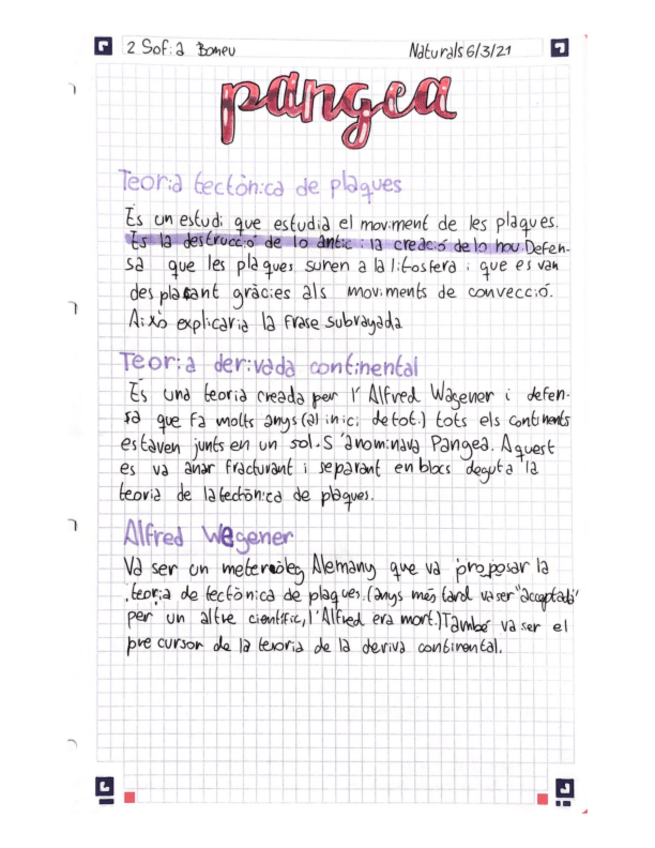 2 Sofia Bomeu Naturals 6/3/21
pangea
Teoria tectònica de plaques
És un estudi que estudia el moviment de les plaques.
És la destrucció de lo antic i la creació de lo nou. Defen-
sa que les plaques suren a la litosfera i que es van
desplaçant gràcies als moviments de convecció.
Això explicaria la frase subrayada
Teoria derivada continental
És una teoria creada per l'Alfred Wagener i defen-
sa que fa molts anys (al inici de tot.) tots els continents
estaven junts en un sol. S'anominava Pangea. Aquest
es va anar fracturant i separant en blocs degut a la
teoria de la tectònica de plaques.
Alfred Wegener
Va ser un metereòleg Alemany que va proposar la
teoria de tectònica de plaques. (anys més tard va ser "acceptada"
per un altre científic, l'Alfred era mort.) També va ser el
precursor de la teroria de la deriva continental.